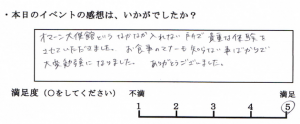 ・本日のイベントの感想は、いかがでしたか?
オマーン大使館というなかなか入れない所で貴重な体験を
させていただきました。お食事のマナーも知らない事ばかりで
大変勉強になりました。ありがとうございました。
満足度（○をしてください） 不満 満足
1 2 3 4 5